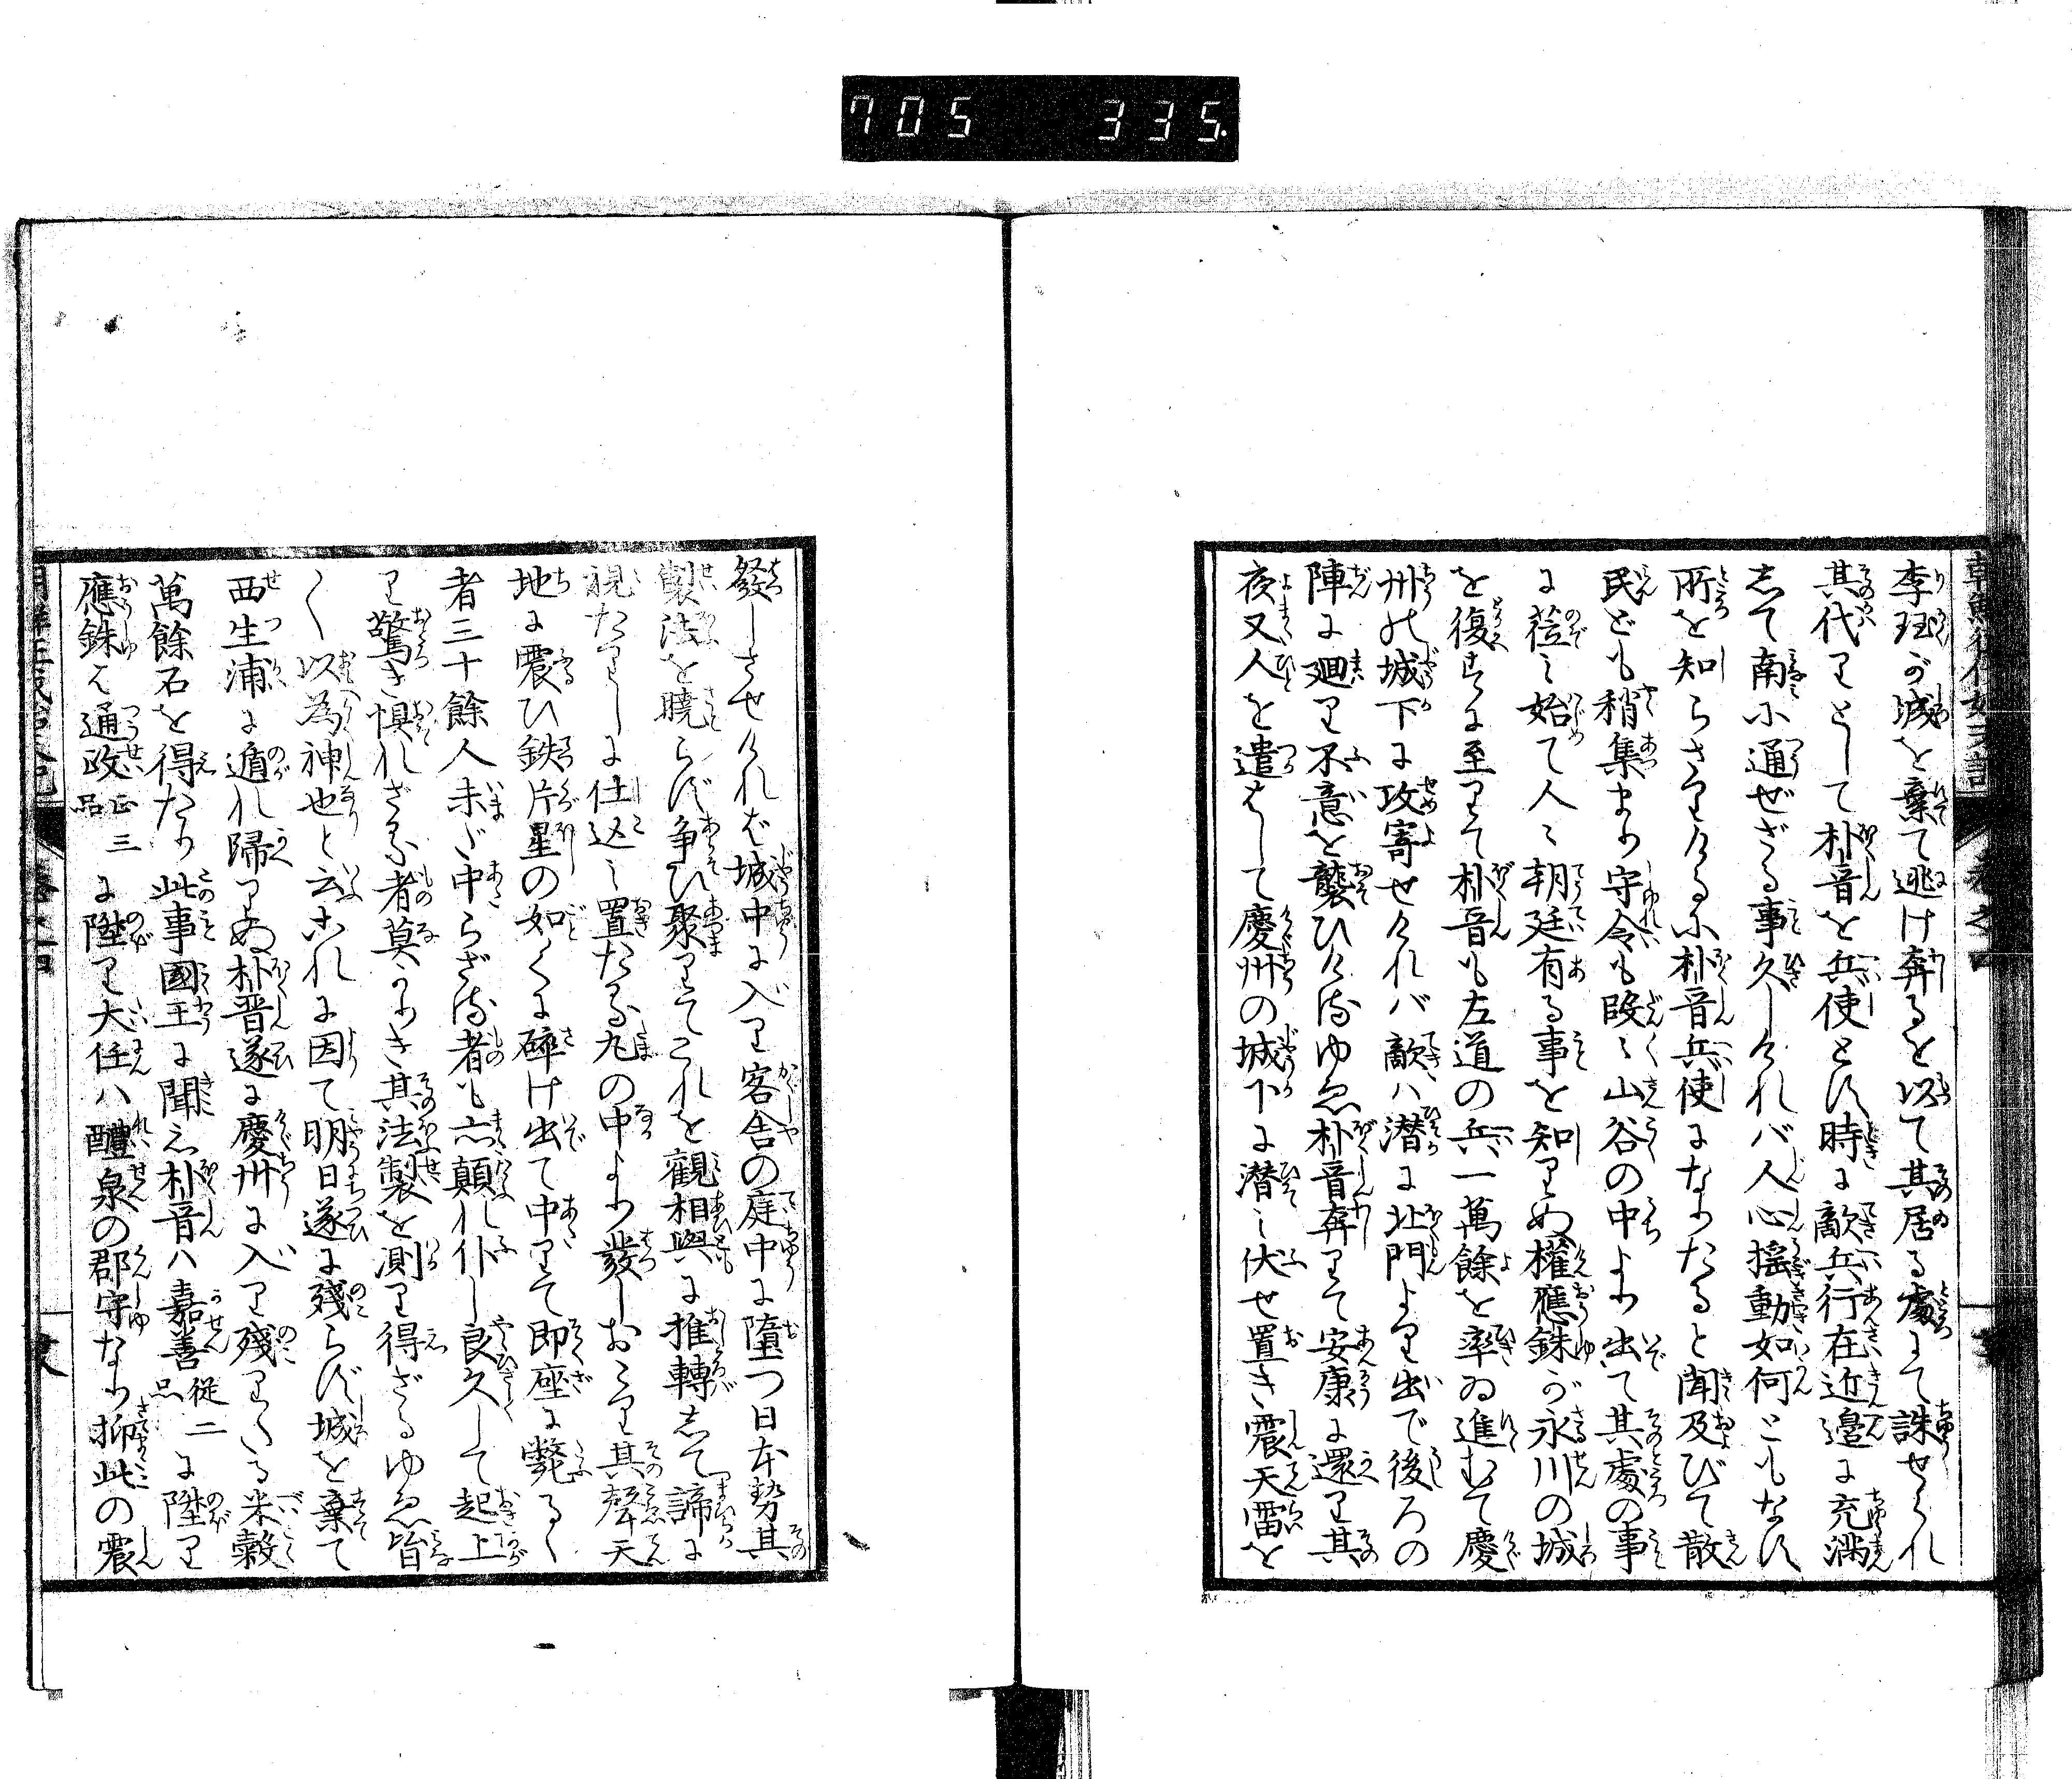 705 335
李珏が城を棄て逃け奔るを以て其居る處にて誅せられ
其代りとして朴晋を兵使とす時に敵兵行在近邊に充満
して南に通ぜざる事久しけれバ人心揺動如何ともなす
所を知らさりけるに朴晋兵使になりたると聞及びて散
民ども稍集まり守令も段ミ山谷の中より出て其處の事
に莅ミ始て人ミ朝廷有る事を知りぬ權應銖が永川の城
を復するに至りて朴晋も左道の兵一萬餘を率ゐ進むて慶
州の城下に攻寄せけれバ敵ハ潜に北門より出で後ろの
陣に廻り不意を襲ひけるゆゑ朴晋奔りて安康に還り其
夜又人を遣はして慶州の城下に潜ミ伏せ置き震天雷を
發しさせければ城中に入り客舎の庭中に墮つ日本勢其
製法を暁らず争ひ聚りてこれを觀相與に推轉して諦に
視たりしに仕込ミ置たる丸の中より發しおこり其聲天
地に震ひ鉄片星の如くに碎け出て中りて即座に斃るゝ
者三十餘人未だ中らざる者も亦顛れ仆し良久して起上
り驚き惧れざる者莫かりき其法製を測り得ざるゆゑ皆
〱以為神也と云これに因て明日遂に殘らず城を棄て
西生浦に遁れ歸りぬ朴晋遂に慶州に入り殘りいる米穀
萬餘石を得たり此事國王に聞え朴晋ハ嘉善從二品に陞り
應銖は通政正三品に陞り大任ハ醴泉の郡守なり抑此の震